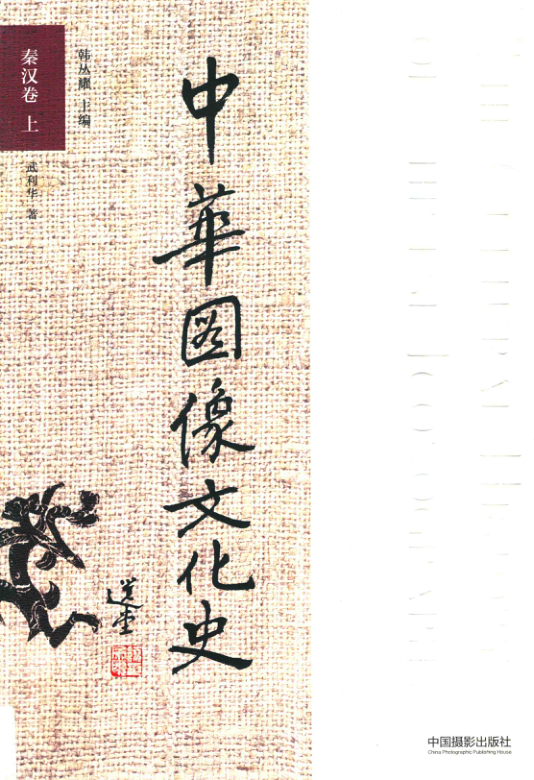 秦汉卷 上
韩丛耀 主编
武利华 著
中華图像文化史
选堂
中国摄影出版社
China Photographic Publishing House